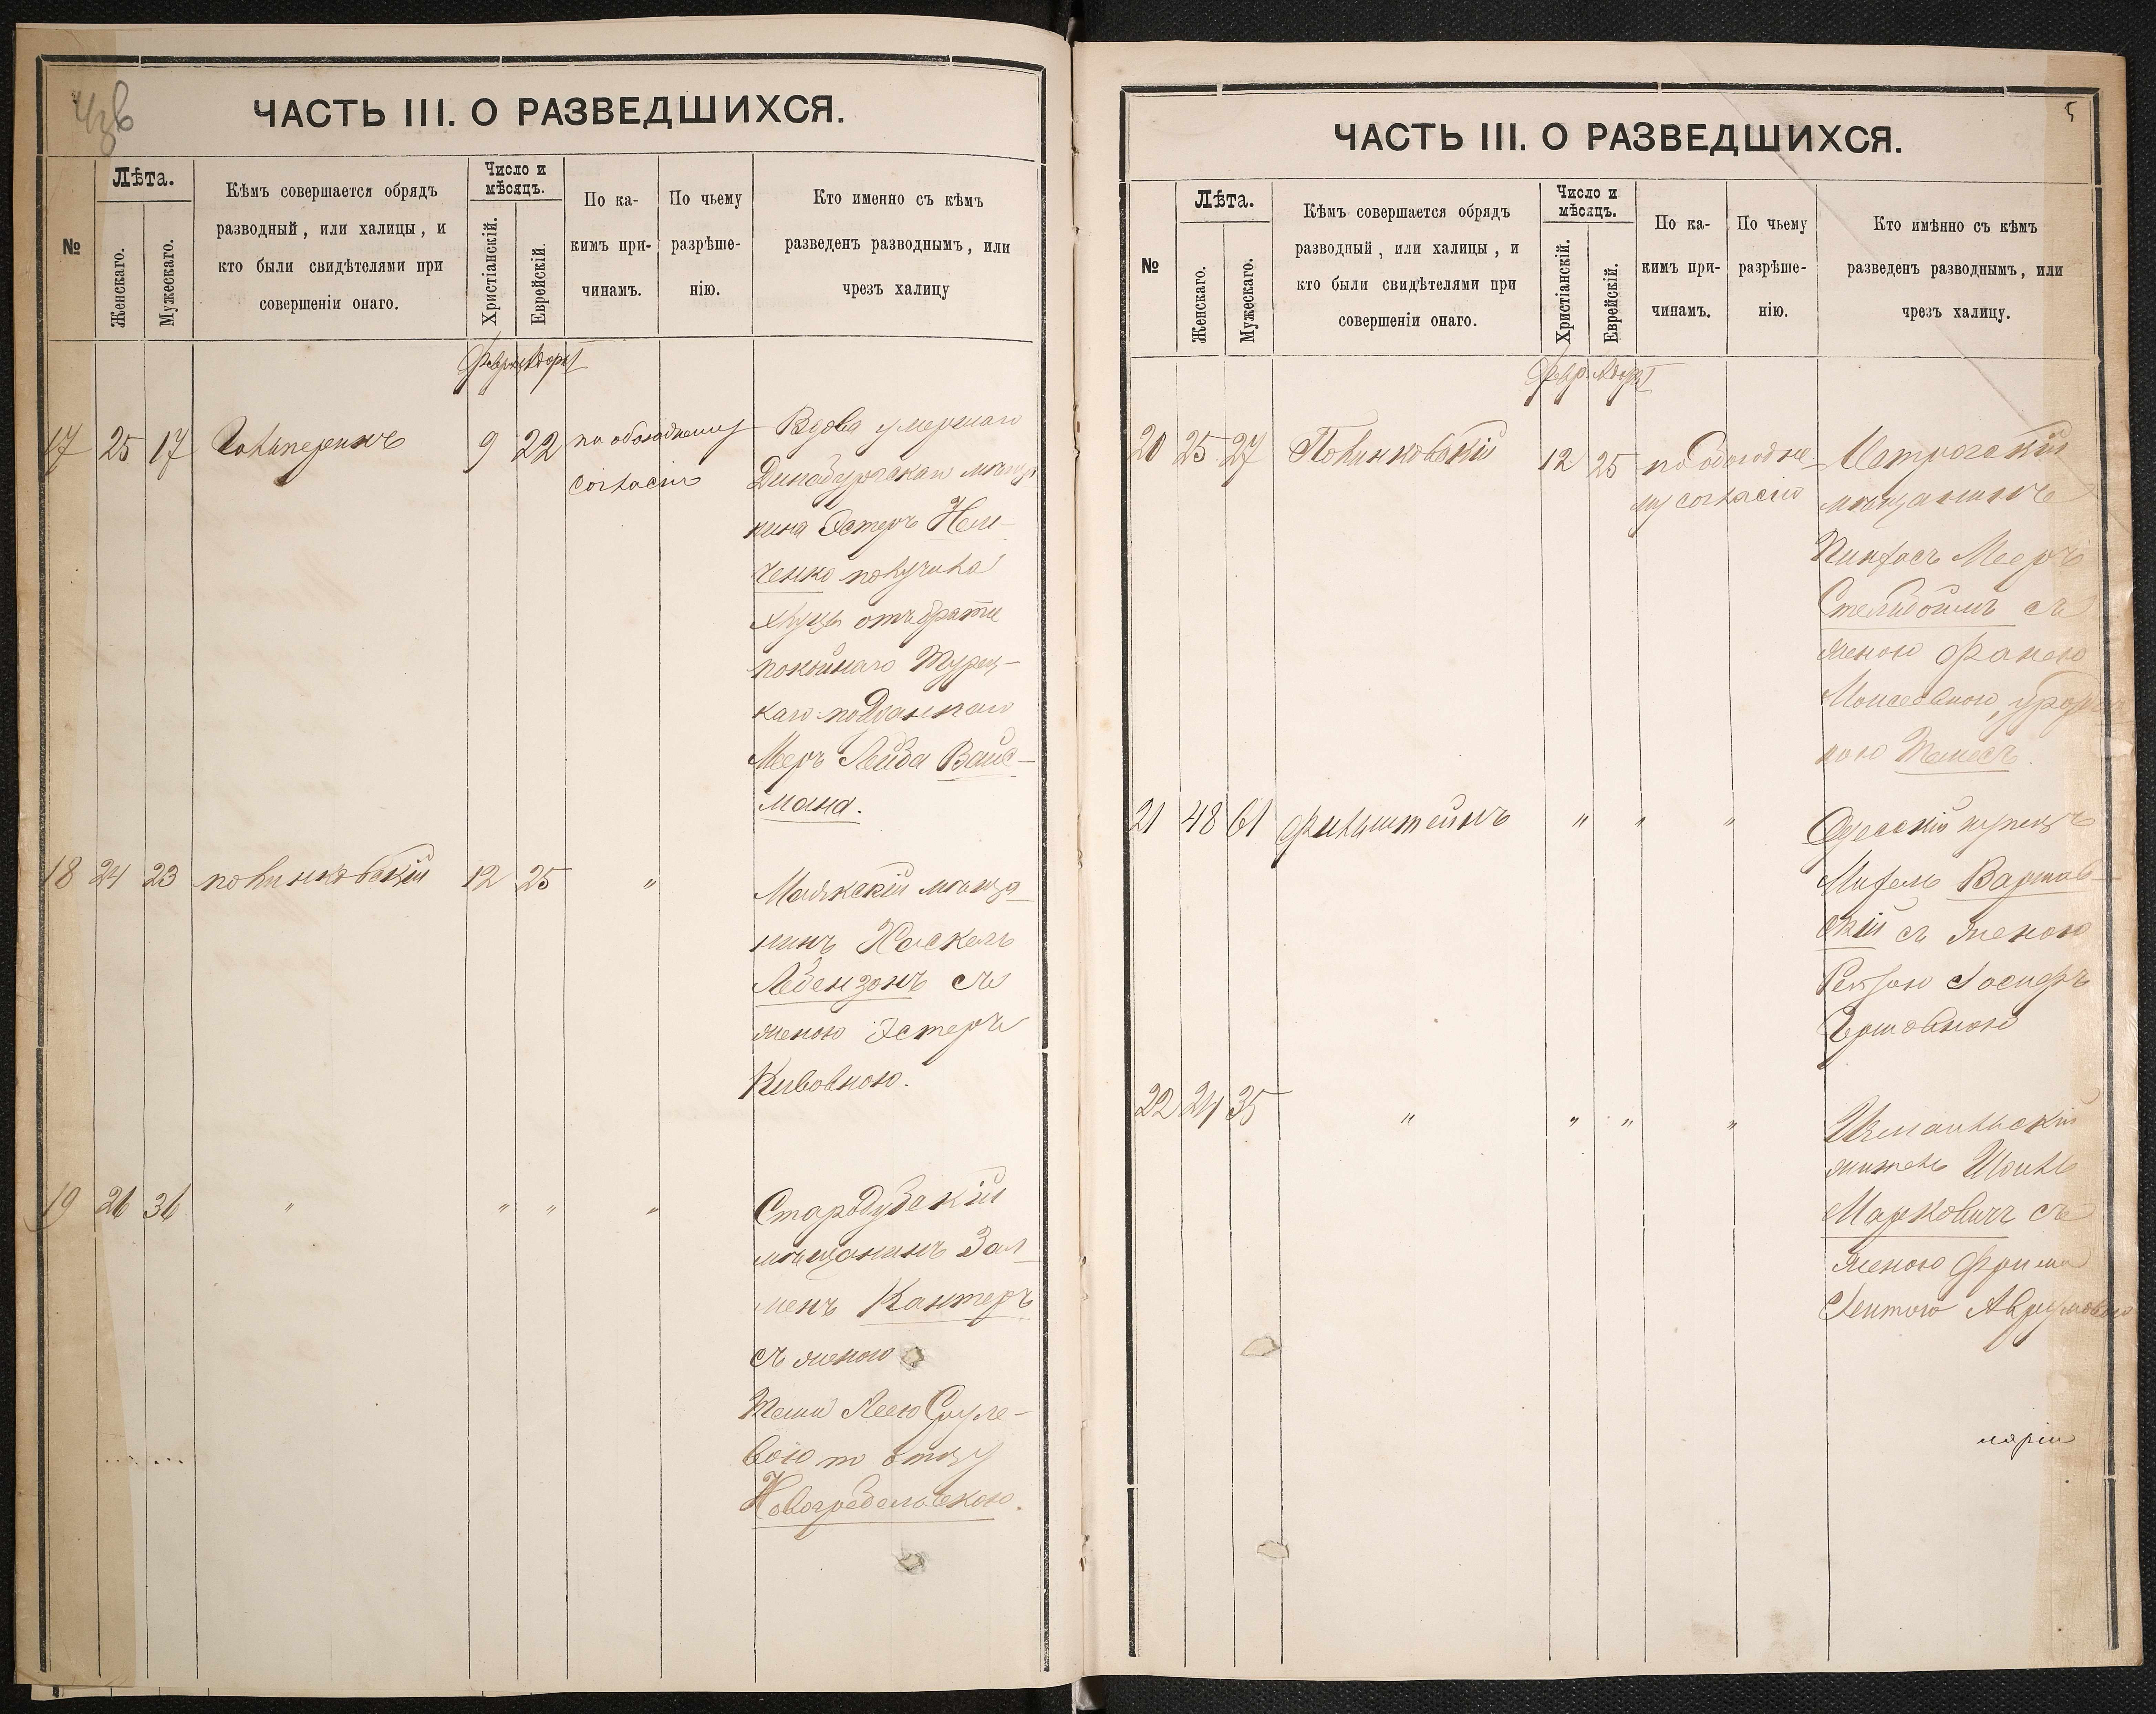 ЧАСТЬ III. О РАЗВЕДШИХСЯ.
№
Лѣта.
Женскаго.
Мужескаго.
Кѣмъ совершается обрядъ
разводный, или халицы, и
кто были свидѣтелями при
совершеніи онаго.
Число и
мѣсяцъ.
Христіанскій.
Еврейскій.
По ка-
кимъ при-
чинамъ.
По чьему
разрѣше-
нію.
Кто именно съ кѣмъ
разведенъ разводнымъ, или
чрезъ халицу
17 25 17 9 22 по обоюдному
согласію
Вдова умершаго
Динабургскаго мѣщ
нина Эстеръ
получила
халицу отъ брата
покойнаго Турец-
каго подданнаго
Мееръ Лейба Вайс-
мана.
18 24 23 Полинковскій 12 25 "
Маякскій мѣща-
нинъ Хаскель
Лебензонъ съ
женою Эстеръ
Кивовною.
19 26 36 " " " "
Стародубскій
мѣщанинъ Зал-
менъ Кантеръ
съ женою
Леею Сруле-
вою по отцу
Новогребельскою.
ЧАСТЬ III. О РАЗВЕДШИХСЯ.
5
№
Лѣта.
Женскаго.
Мужескаго.
Кѣмъ совершается обрядъ
разводный, или халицы, и
кто были свидѣтелями при
совершеніи онаго.
Число и
мѣсяцъ.
Христіанскій.
Еврейскій.
По ка-
кимъ при-
чинамъ.
По чьему
разрѣше-
нію.
Кто имѣнно съ кѣмъ
разведенъ разводнымъ, или
чрезъ халицу.
20 25 27 Полинковскій 12 25 по обоюдно-
му согласію
мѣщанинъ
Пинхасъ Мееръ
съ
женою Фанею
Моисеевною, урожден
ною
21 48 61 Фильштейнъ " " "
Одесскій купецъ
Михель Варшав-
скій съ женою
Іосифъ
Гершовною
22 24 35 " " " "
Измаильскій
житель Шоилъ
Марковичъ съ
женою Фрима
Аврумовною